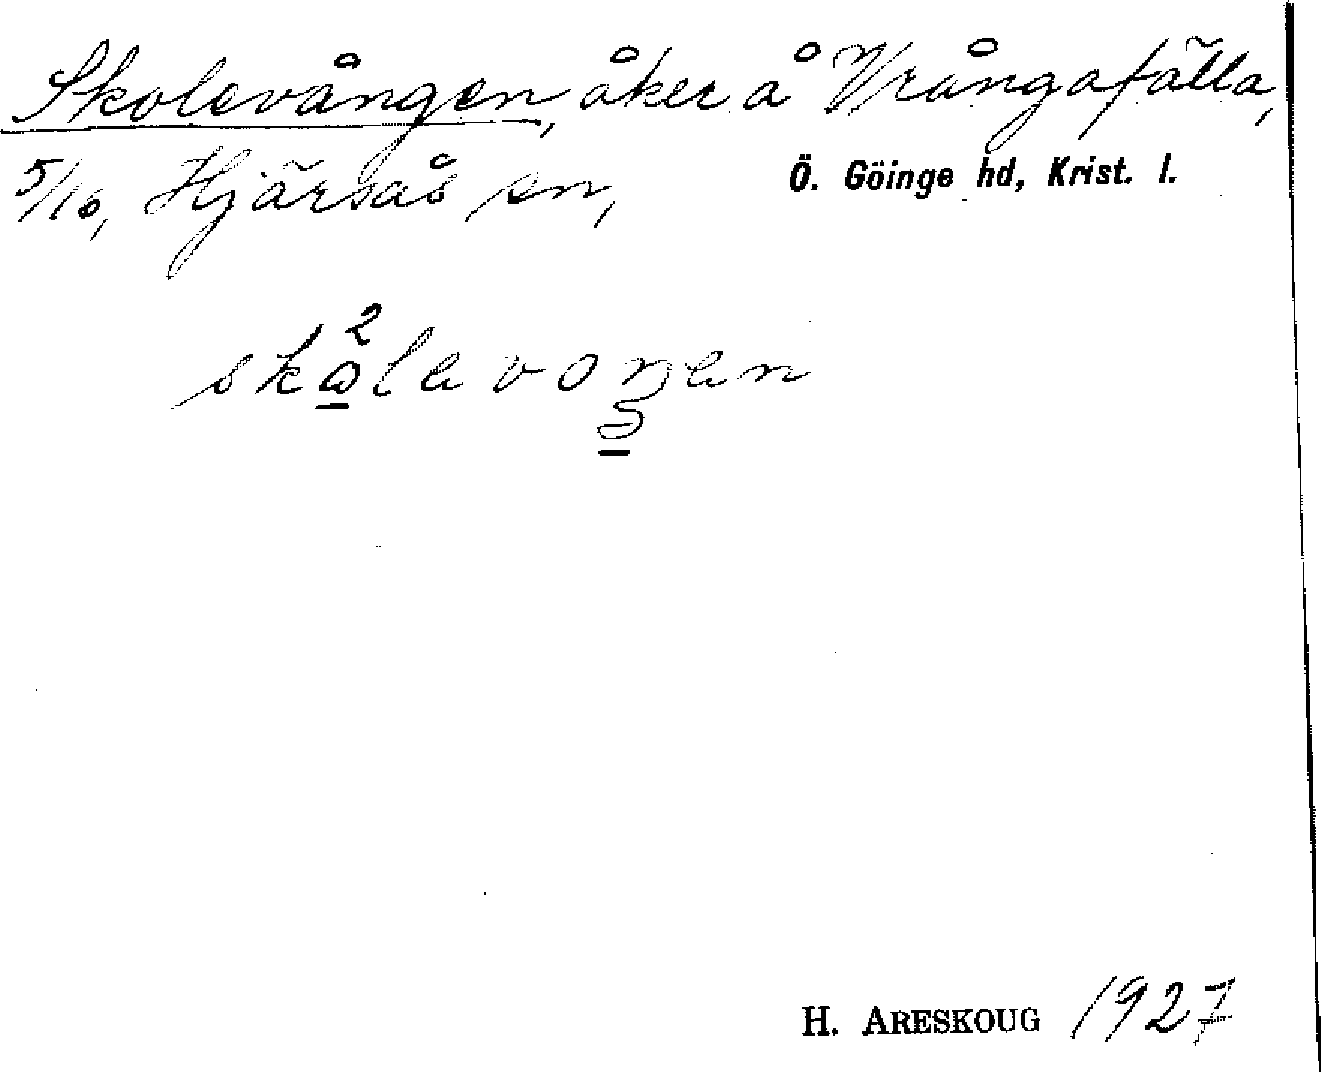 Skolevången, åker å Vrångafälla,
5/16, Hjärsås sn, Ö. Göinge hd, Krist. l.
skω²levoŋen
H. ARESKOUG 1927